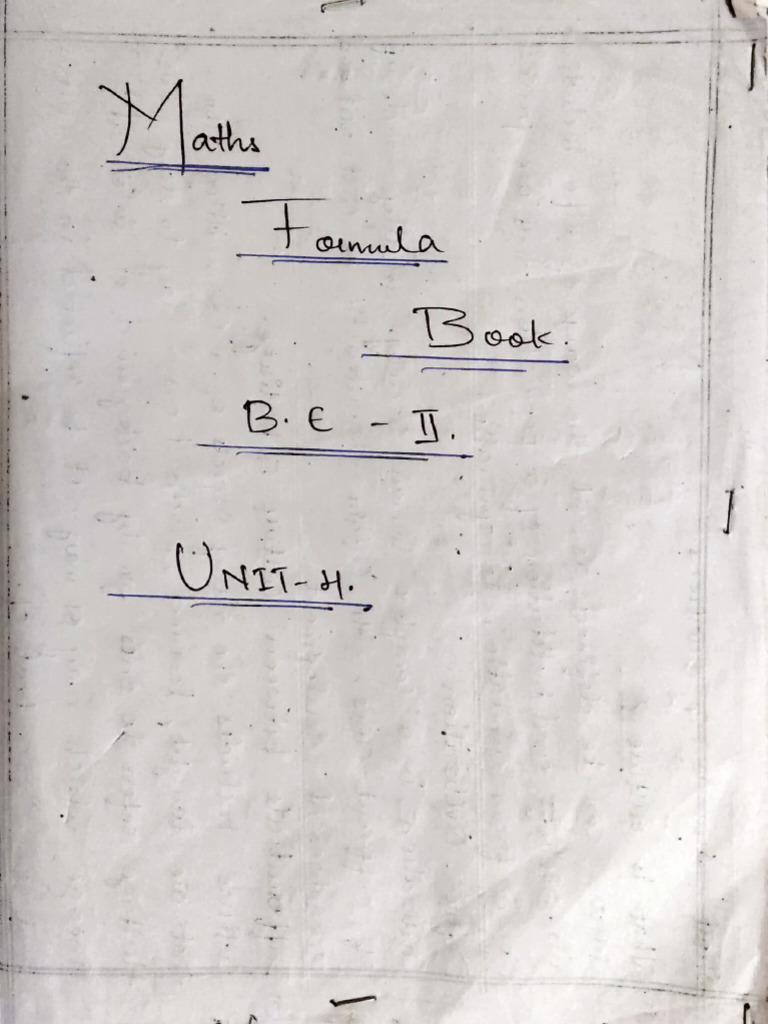 Maths
Formula
Book.
B.E - II.
UNIT-4.